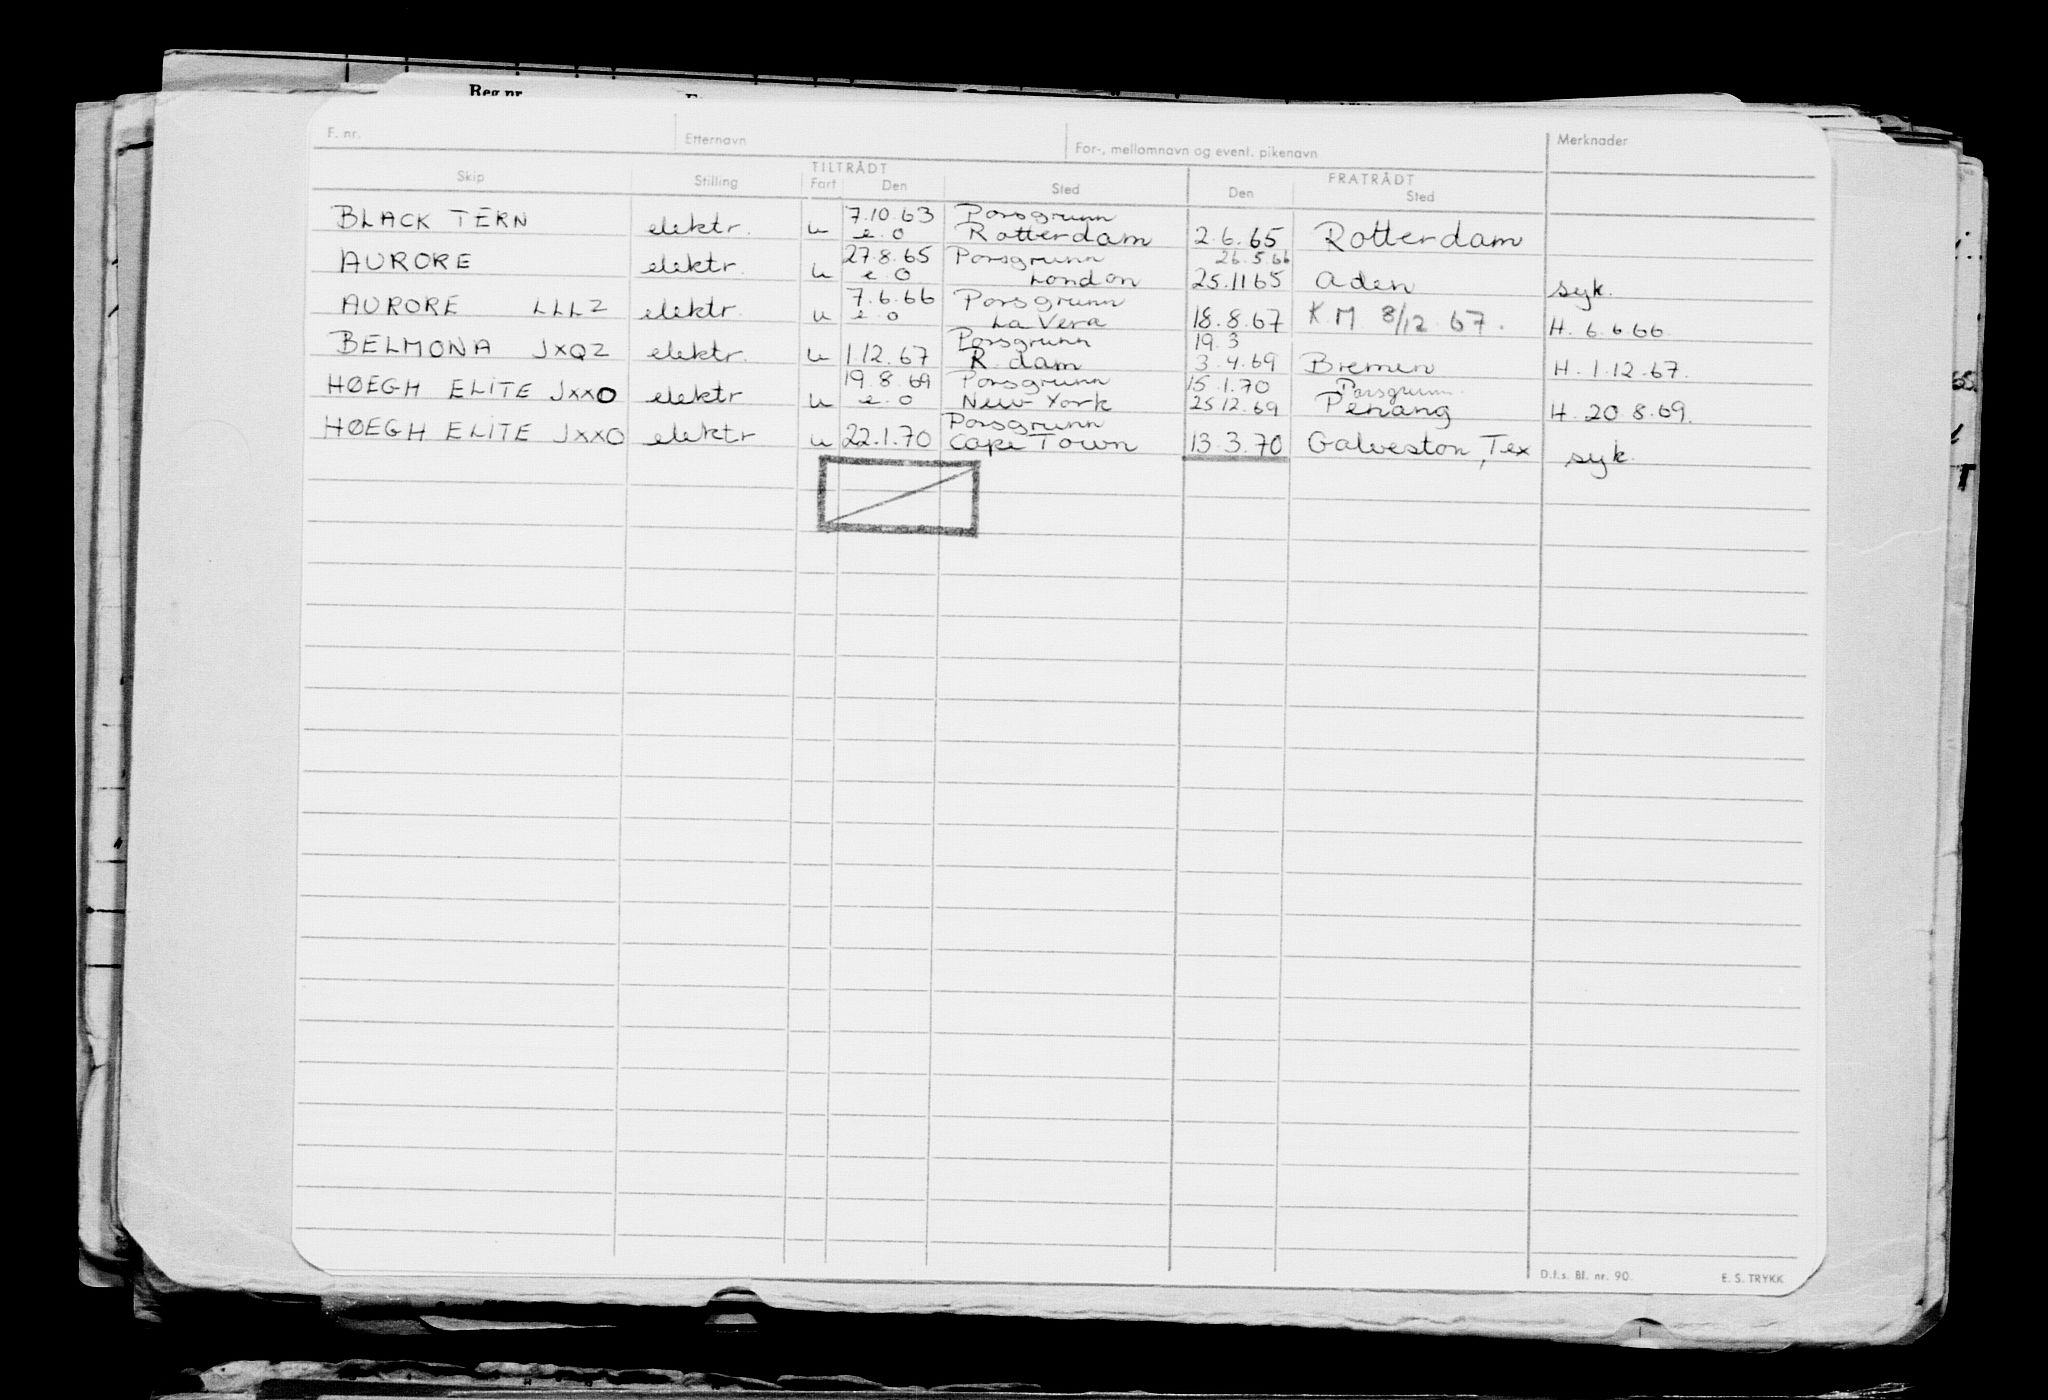 Reg.nr.
F. nr. Etternavn For-, mellomnavn og event. pikenavn Merknader
TILTRÅDT FRATRÅDT
Skip Stilling Fart Den Sted Den Sted
7.10.63 Porsgrunn
BLACK TERN elektr. u e.o Rotterdam 2.6.65 Rotterdam
27.8.65 Porsgrunn 26.5.66
AURORE elektr. u e.o London 25.11 65 Aden syk.
7.6.66 Porsgrunn
AURORE LLLZ elektr. u e.o La Vera 18.8.67 K.M 8/12.67. H. 6.6.66.
Porsgrunn 19.3
BELMONA JXQZ elektr. u 1.12.67 R.dam 3.4.69 Bremen H.1.12.67.
19.8.69 Porsgrunn 15.1.70 Porsgrunn.
HØEGH ELITE JXXO elektr u e.o New York 25.12.69 Penang H.20.8.69.
Porsgrunn
HØEGH ELITE JXXO elektr u 22.1.70 Cape Town 13.3.70 Galveston, Tex syk.
D.f.s. Bl. nr. 90. E. S. TRYKK